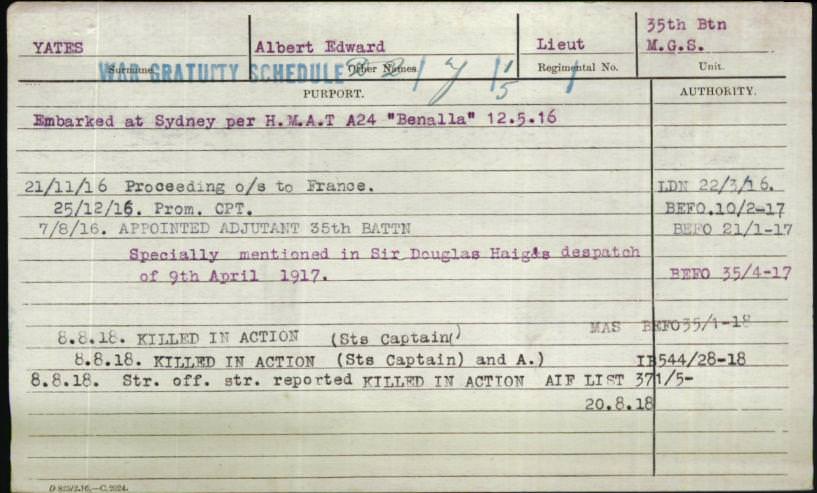 35th Btn
YATES Albert Edward Lieut M.G.S.
Surname. Other Names. Regimental No. Unit.
WAR GRATUITY SCHEDULE
PURPORT. AUTHORITY.
Embarked at Sydney per H.M.A.T A24 "Benalla" 12.5.16
21/11/16 Proceeding o/s to France. LDN 22/3/16.
25/12/16. Prom. CPT. BEFO.10/2-17
7/8/16. APPOINTED ADJUTANT 35th BATTN BEFO 21/1-17
Specially mentioned in Sir Douglas Haig&s despatch
of 9th April 1917. BEFO 35/4-17
8.8.18. KILLED IN ACTION (Sts Captain( MAS BEFO35/1-18
8.8.18. KILLED IN ACTION (Sts Captain) and A.) 544/28-18
8.8.18. Str. off. str. reported KILLED IN ACTION AIF LIST 371/5-
20.8.18